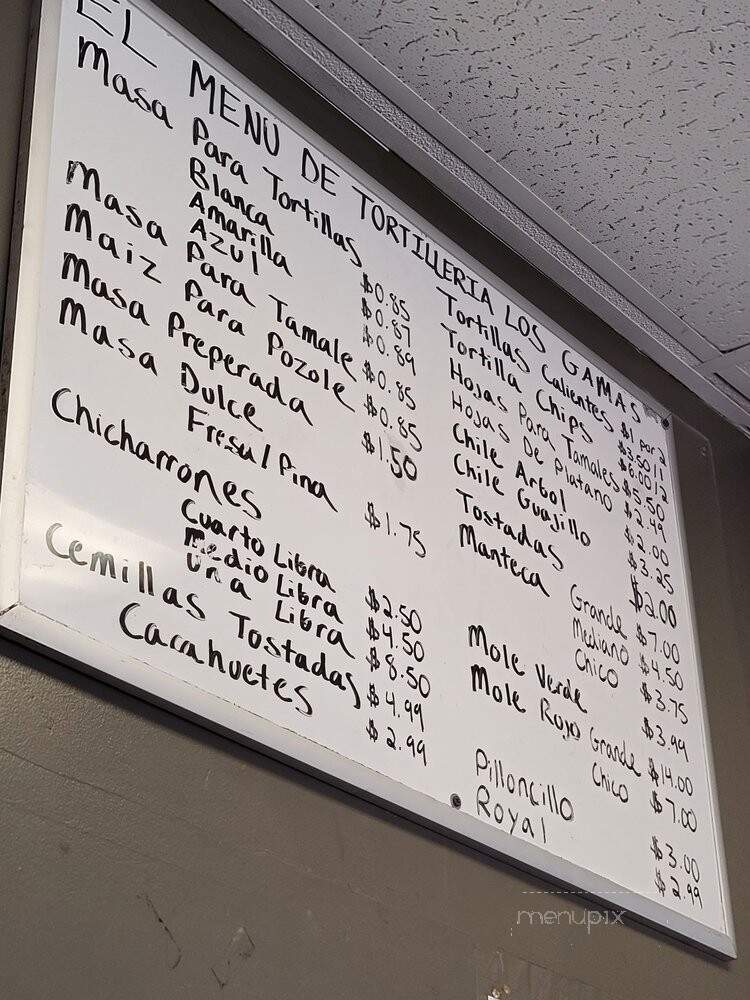 EL MENU DE TORTILLERIA LOS GAMAS
Masa Para Tortillas
Blanca $0.85
Amarilla $0.87
AZUL $0.89
Masa Para Tamale $0.85
Maiz Para Pozole $0.85
Masa Preperada $1.50
Masa Dulce
Fresu/Pina $1.75
Chicharrones
Cuarto Libra $2.50
Medio Libra $4.50
Una Libra $8.50
Cemillas Tostadas $4.99
Cacahuetes $2.99
Tortillas Calientes $1 por 2
Tortilla Chips $3.50/1 $6.00/2
Hojas Para Tamales $5.50
Hojas De Platano $2.99
Chile Arbol $2.00
Chile Guajillo $3.25
Tostadas $2.00
Manteca
Grande $7.00
Mediano $4.50
Chico $3.75
Mole Verde $3.99
Mole Rojo Grande $14.00
Chico $7.00
Pilloncillo $3.00
Royal $2.99
menupix